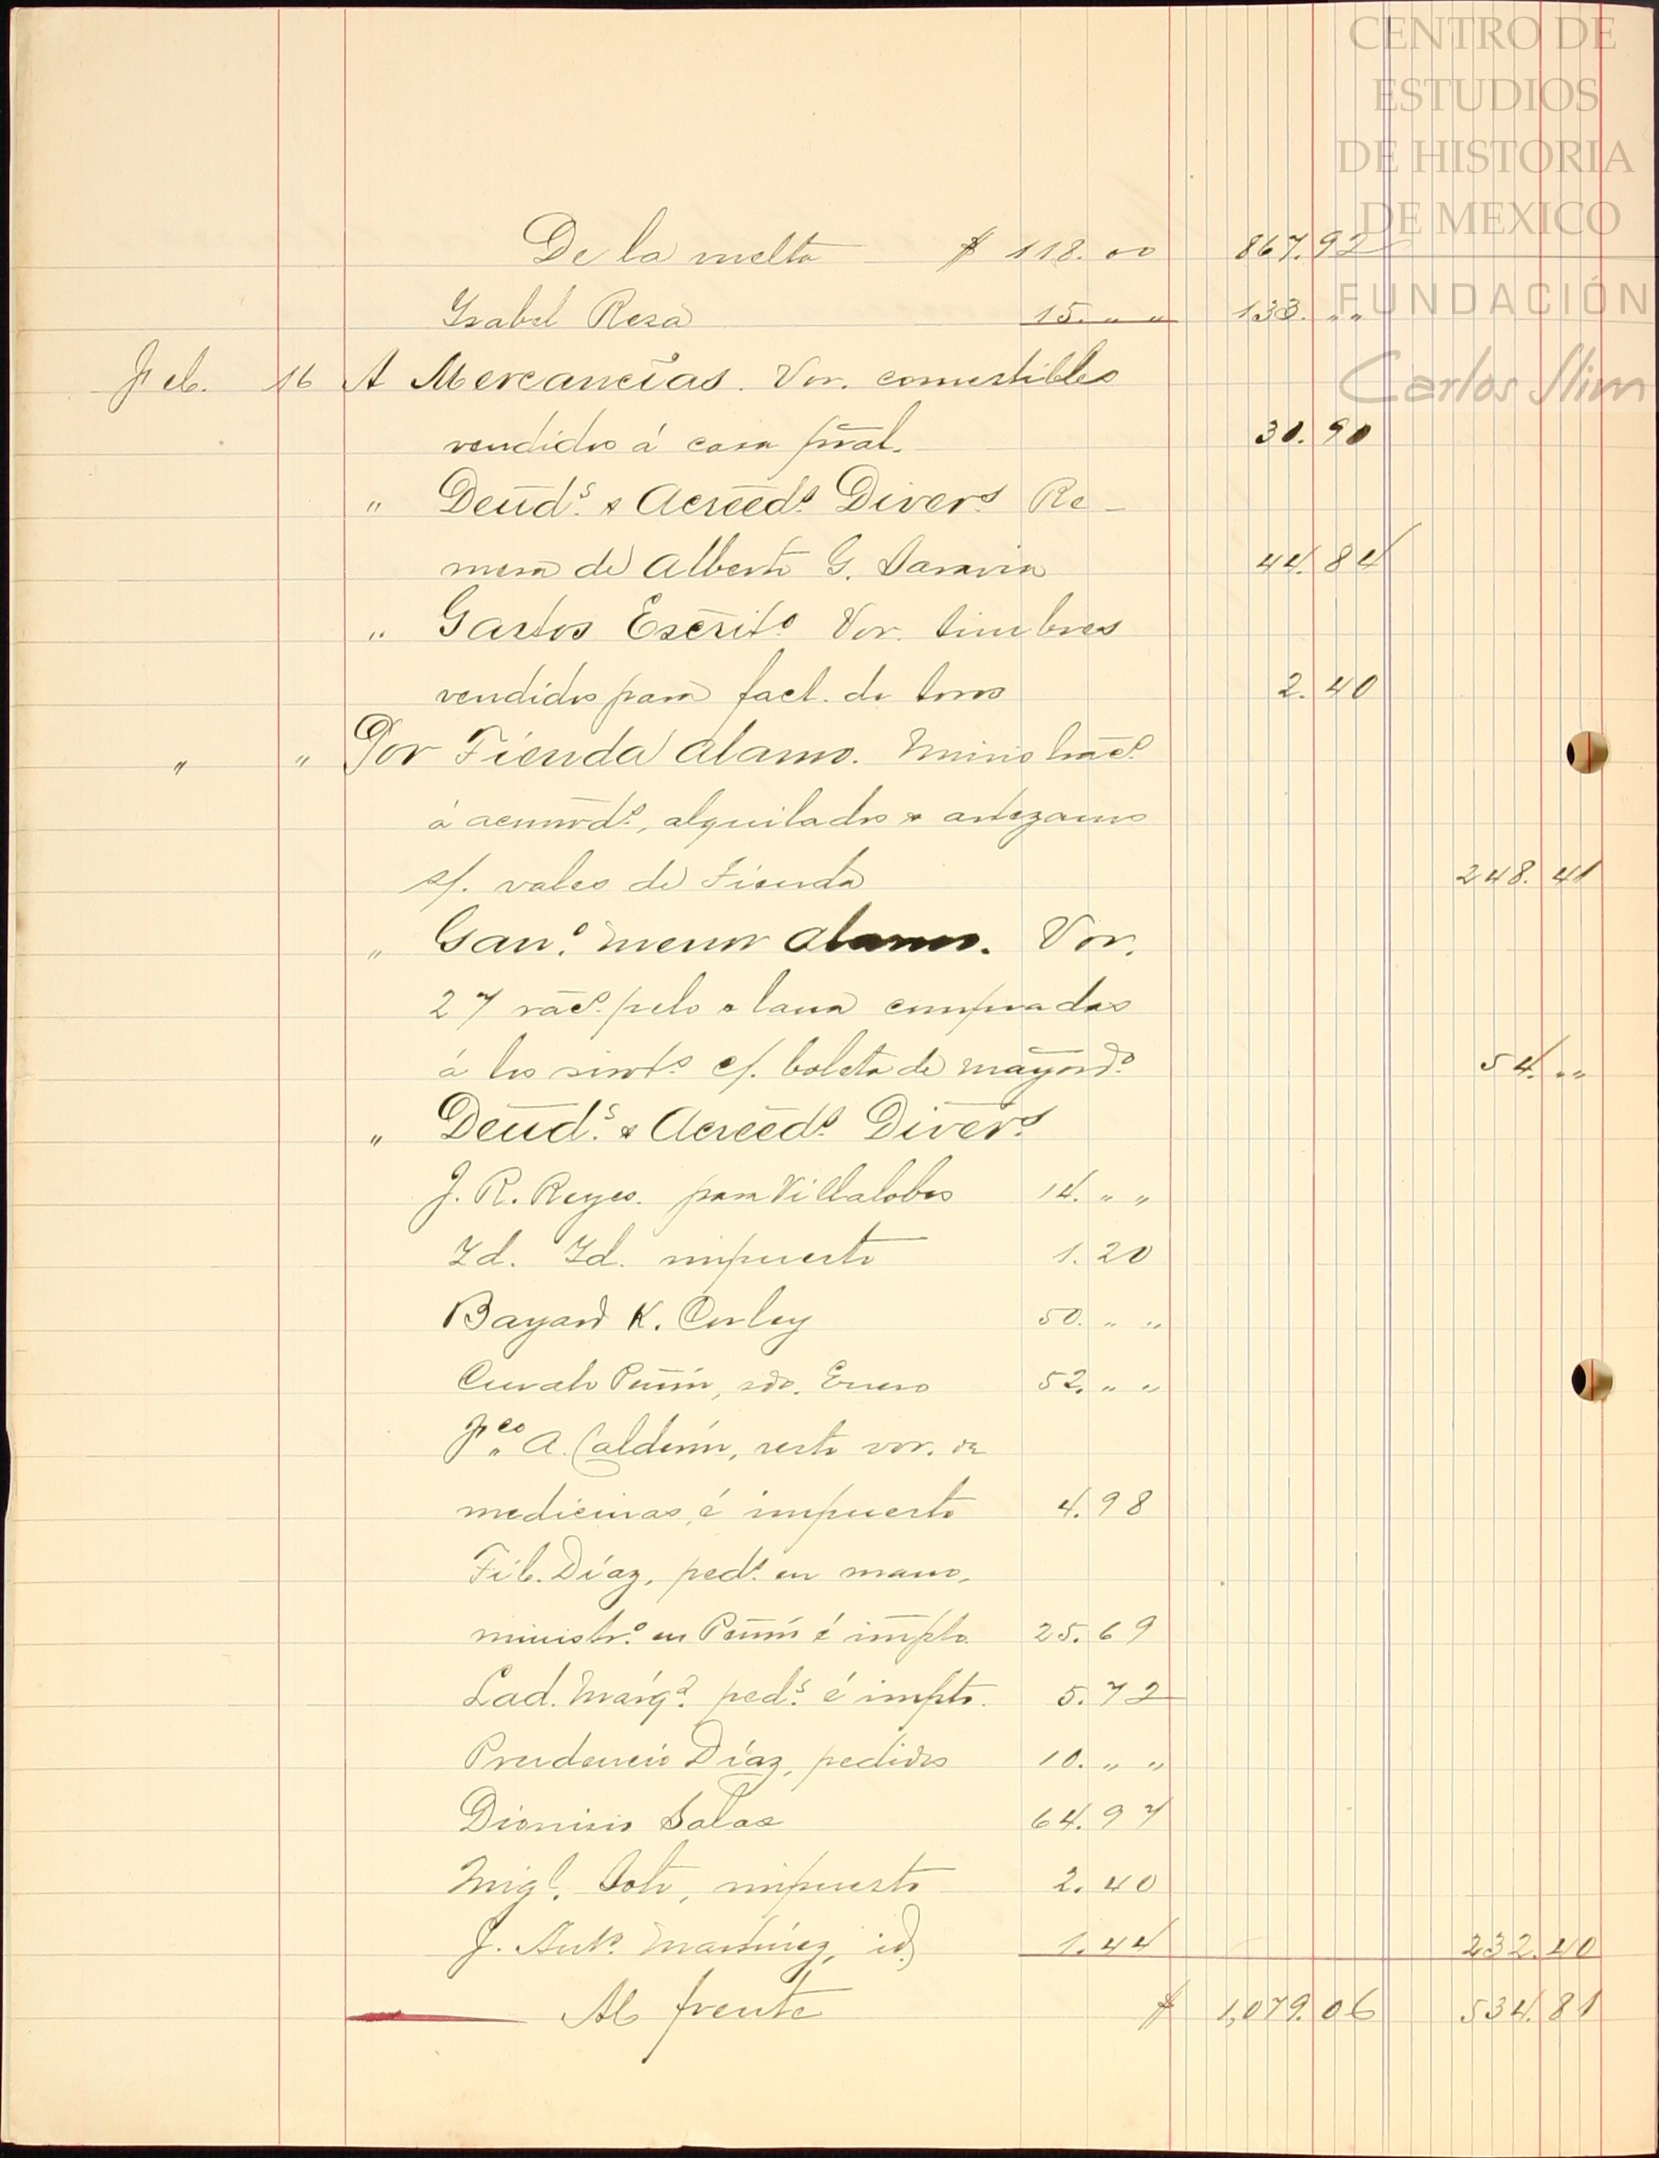 CENTRO DE
ESTUDIOS
DE HISTORIA
DE MEXICO
FUNDACIÓN
Carlos Slim
De la vuelta $ 118.00 867.92
Isabel Reza 15. " " 133. " "
Feb. 16 A Mercancías. Vor. comestibles
vendidos á casa pral. 30.90
" Deud.s & Acreed.s Divers. Re-
mesa de Alberto G. Saravia 44.84
" Gastos Escrito. Vor. timbres
vendidos para fact. de toros 2.40
" " Por Tienda Alamo. Ministrac.s
á acomod.s, alquilados & artezanos
s/. vales de Tienda 248.41
" Gan.o menor Alamo. Vor.
27 rac.s pelo & lana compradas
á los sirvts. c/. boleta de mayord.o 54. " "
" Deud.s & Acreed.s Divers.
J. R. Reyes. para Villalobos 14. " "
Id. Id. impuesto 1.20
Bayard K. Corley 50. " "
Peñón, sdo. Enero 52. " "
F.co A. Calderón, resto vor. de
medicinas é impuesto 4.98
Tib. Díaz, ped.s en mano,
ministr.o en Peñón é impto. 25.69
Lad. Márq.z ped.s é impto. 5.72
Prudencio Díaz, pedidos 10. " "
Dionisio Salas 64.97
Migl. Soto, impuesto 2.40
J. Ant.o Martínez, id. 1.44 232.40
Al frente $ 1,079.06 534.81